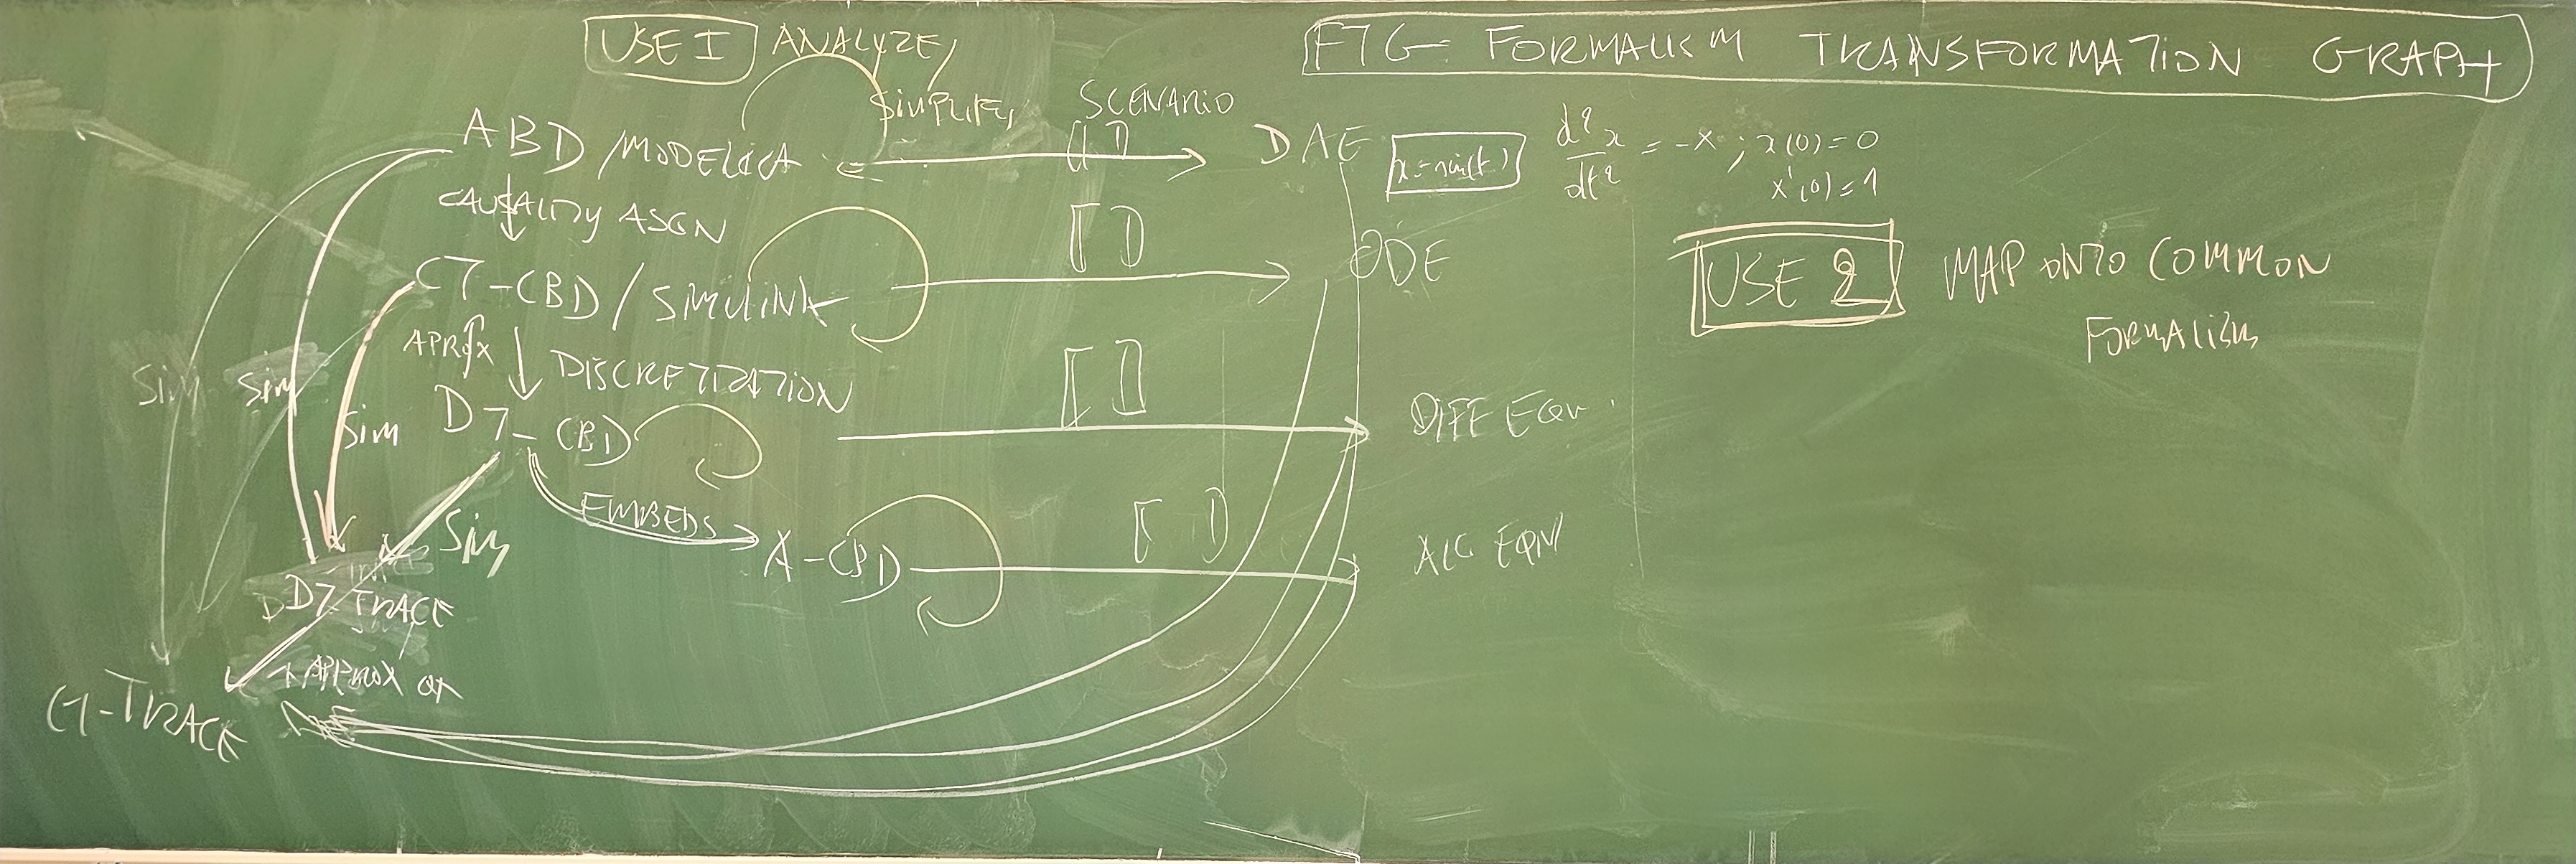 USE I ANALYZE,
SIMPLIFY,
FTG = FORMALISM TRANSFORMATION GRAPH
ABD / MODELICA
SCENARIO
[[ ]]
DAE
x = sin(t)
d²x/dt² = -x ; x(0) = 0
x'(0) = 1
CAUSALITY ASGN
[[ ]]
ODE
USE 2 MAP ONTO COMMON
FORMALISM
CT-CBD / SIMULINK
APROX
DISCRETIZATION
[[ ]]
DIFF EQN.
Sim
Sim
Sim
DT-CBD
EMBEDS
Sim
A-CBD
[[ ]]
ALG EQN
DT TRACE
APPROX OF
CT-TRACE